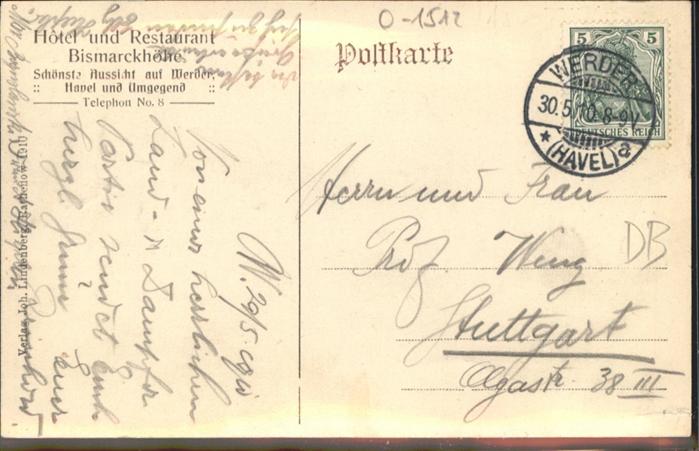 O-1512
Hôtel und Restaurant
Bismarckhöhe
Schönste Aussicht auf Werder,
:: Havel und Umgegend ::
Telephon No. 8
Verlag Joh. Lindenberg, Rathenow 1910
W. 29/5. 1910
Von einer herrlichen
Land- u Dampfer
Partie sendet Euch
herzl. Euer
Postkarte
5 5
DEUTSCHES REICH
WERDER
30.5.10. 8-9V.
* (HAVEL) a
Herrn und Frau
Prof. Weng
Stuttgart
Olgastr. 38 III
DB